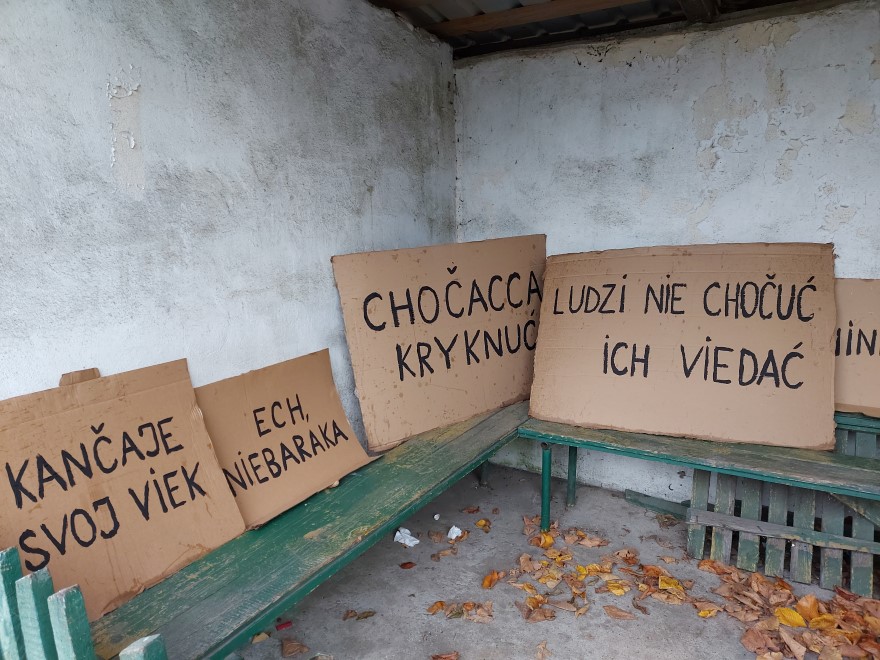 KANČAJE
SVOJ VIEK
ECH,
NIEBARAKA
CHOČACCA
KRYKNUĆ
LUDZI NIE CHOČUĆ
ICH VIEDAĆ